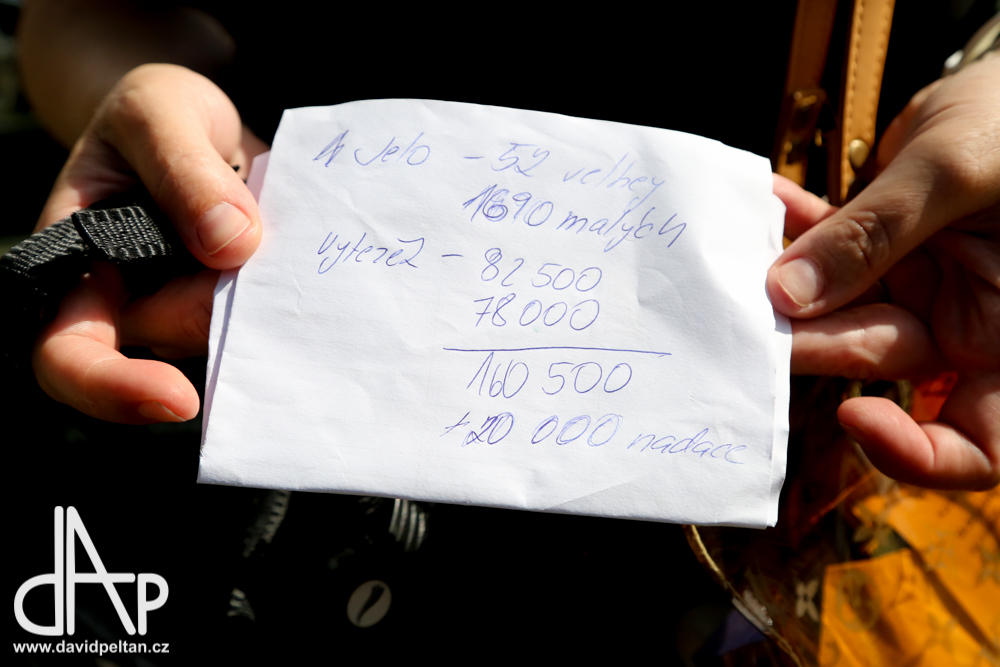 Jelo - 52 velkey
1690 malých
Vytěrež - 82 500
78 000
160 500
+20 000 nadace
dAP
www.davidpeltan.cz